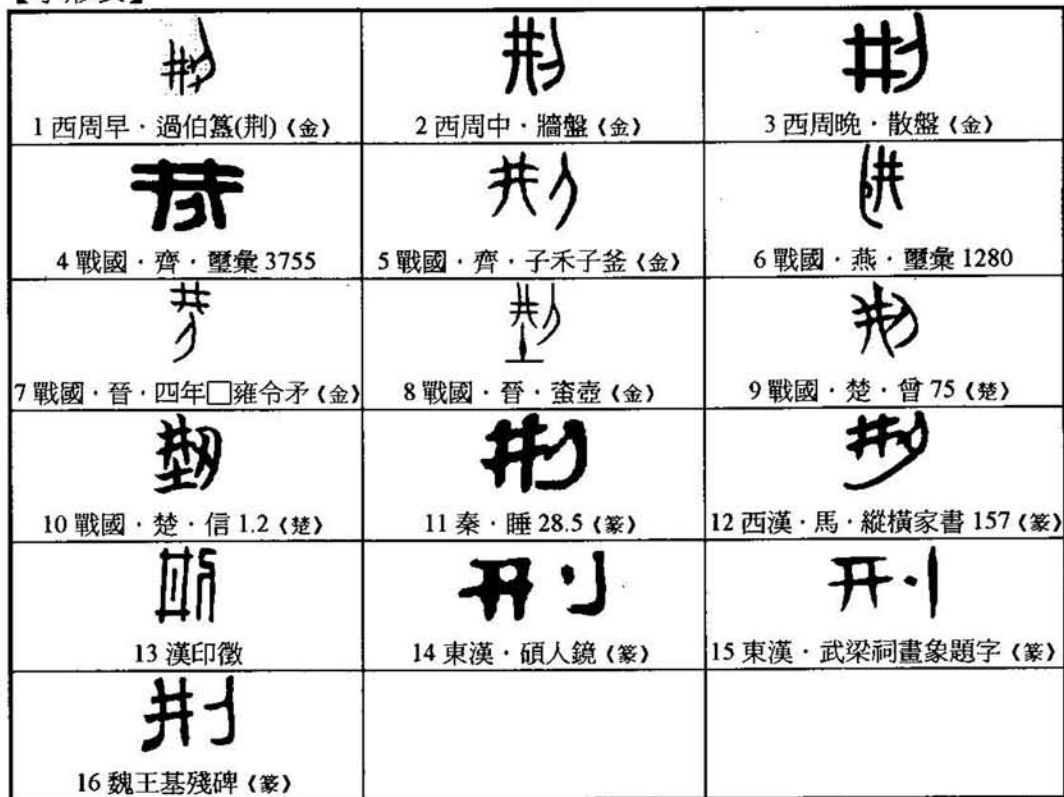 1 西周早．過伯簋(荆)《金》 2 西周中．牆盤《金》 3 西周晚．散盤《金》
4 戰國．齊．璽彙 3755 5 戰國．齊．子禾子釜《金》 6 戰國．燕．璽彙 1280
7 戰國．晉．四年□雍令矛《金》 8 戰國．晉．𧊒壺《金》 9 戰國．楚．曾 75《楚》
10 戰國．楚．信 1.2《楚》 11 秦．睡 28.5《篆》 12 西漢．馬．縱橫家書 157《篆》
13 漢印徵 14 東漢．碩人鏡《篆》 15 東漢．武梁祠畫象題字《篆》
16 魏王基殘碑《篆》